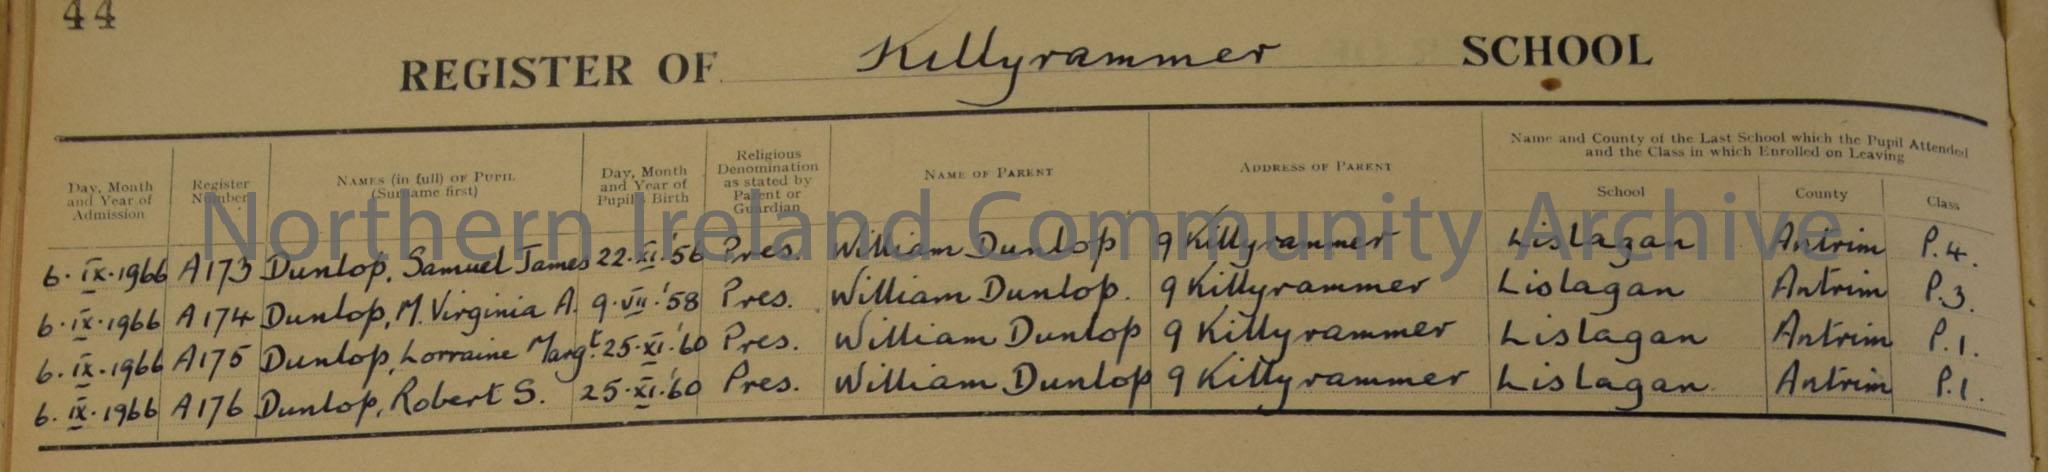 44
REGISTER OF Killyrammer SCHOOL
Day, Month and Year of Admission
Register Number
NAMES (in full) OF PUPIL (Surname first)
Day, Month and Year of Pupil's Birth
Religious Denomination as stated by Parent or Guardian
NAME OF PARENT
ADDRESS OF PARENT
Name and County of the Last School which the Pupil Attended and the Class in which Enrolled on Leaving
School County Class
Northern Ireland Community Archive
6·IX·1966 A173 Dunlop, Samuel James 22·XI·'56 Pres. William Dunlop 9 Killyrammer Lislagan Antrim P.4.
6·IX·1966 A174 Dunlop, M. Virginia A. 9·VII·'58 Pres. William Dunlop. 9 Killyrammer Lislagan Antrim P.3.
6·IX·1966 A175 Dunlop, Lorraine Margt. 25·XI·'60 Pres. William Dunlop 9 Killyrammer Lislagan Antrim P.1.
6·IX·1966 A176 Dunlop, Robert S. 25·XI·'60 Pres. William Dunlop 9 Killyrammer Lislagan Antrim P.1.